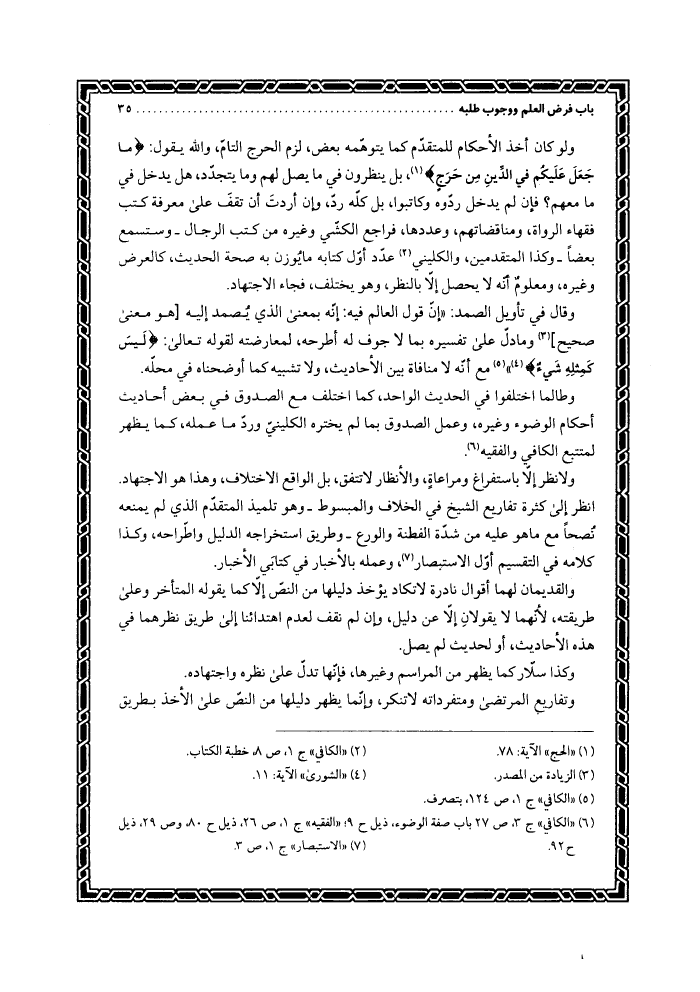 باب فرض العلم ووجوب طلبه ........................................................ ٣٥
ولو كان أخذ الأحكام للمتقدّم كما يتوهّمه بعض، لزم الحرج التامّ، والله يـقول: ﴿مـا
جَعَلَ عَلَيكُم في الدِّينِ مِن حَرَجٍ﴾(١)، بل ينظرون في ما يصل لهم وما يتجدّد، هل يدخل في
ما معهم؟ فإن لم يدخل ردّوه وكاتبوا، بل كلّه ردّ، وإن أردتَ أن تقفَ علىٰ معرفة كـتب
فقهاء الرواة، ومناقضاتهم، وعددها، فراجع الكشّي وغيره من كتب الرجال ـ وستسمع
بعضاً ـ وكذا المتقدمين، والكليني(٢) عدّد أوّل كتابه مايُوزن به صحة الحديث، كالعرض
وغيره، ومعلومٌ أنّه لا يحصل إلّا بالنظر، وهو يختلف، فجاء الاجتهاد.
وقال في تأويل الصمد: «إنّ قول العالم فيه: إنّه بمعنىٰ الذي يُـصمد إليـه [هـو مـعنىٰ
صحيح](٣) ومادلّ علىٰ تفسيره بما لا جوف له أطرحه، لمعارضته لقوله تـعالىٰ: ﴿لَـيسَ
كَمِثلِهِ شَيءٌ﴾(٤)»(٥) مع أنّه لا منافاة بين الأحاديث، ولا تشبيه كما أوضحناه في محلّه.
وطالما اختلفوا في الحديث الواحد، كما اختلف مـع الصـدوق فـي بـعض أحـاديث
أحكام الوضوء وغيره، وعمل الصدوق بما لم يختره الكلينيّ وردّ مـا عـمله، كـما يـظهر
لمتتبع الكافي والفقيه(٦).
ولانظر إلّا باستفراغ ومراعاةٍ، والأنظار لاتتفق، بل الواقع الاختلاف، وهذا هو الاجتهاد.
انظر إلىٰ كثرة تفاريع الشيخ في الخلاف والمبسوط ـ وهو تلميذ المتقدّم الذي لم يمنعه
نُصحاً مع ماهو عليه من شدّة الفطنة والورع ـ وطريق استخراجه الدليل واطّراحه، وكـذا
كلامه في التقسيم أوّل الاستبصار(٧)، وعمله بالأخبار في كتابَي الأخبار.
والقديمان لهما أقوال نادرة لاتكاد يؤخذ دليلها من النصّ إلّا كما يقوله المتأخر وعلىٰ
طريقته، لأنّهما لا يقولانِ إلّا عن دليل، وإن لم نقف لعدم اهتدائنا إلىٰ طريق نظرهما في
هذه الأحاديث، أو لحديث لم يصل.
وكذا سلّار كما يظهر من المراسم وغيرها، فإنّها تدلّ علىٰ نظره واجتهاده.
وتفاريع المرتضىٰ ومتفرداته لاتنكر، وإنّما يظهر دليلها من النصّ علىٰ الأخذ بـطريق
(١) «الحج» الآية: ٧٨.
(٢) «الكافي» ج ١، ص ٨، خطبة الكتاب.
(٣) الزيادة من المصدر.
(٤) «الشورىٰ» الآية: ١١.
(٥) «الكافي» ج ١، ص ١٢٤، بتصرف.
(٦) «الكافي» ج ٣، ص ٢٧ باب صفة الوضوء، ذيل ح ٩؛ «الفقيه» ج ١، ص ٢٦، ذيل ح ٨٠، وص ٢٩، ذيل
ح ٩٢.
(٧) «الاستبصار» ج ١، ص ٣.